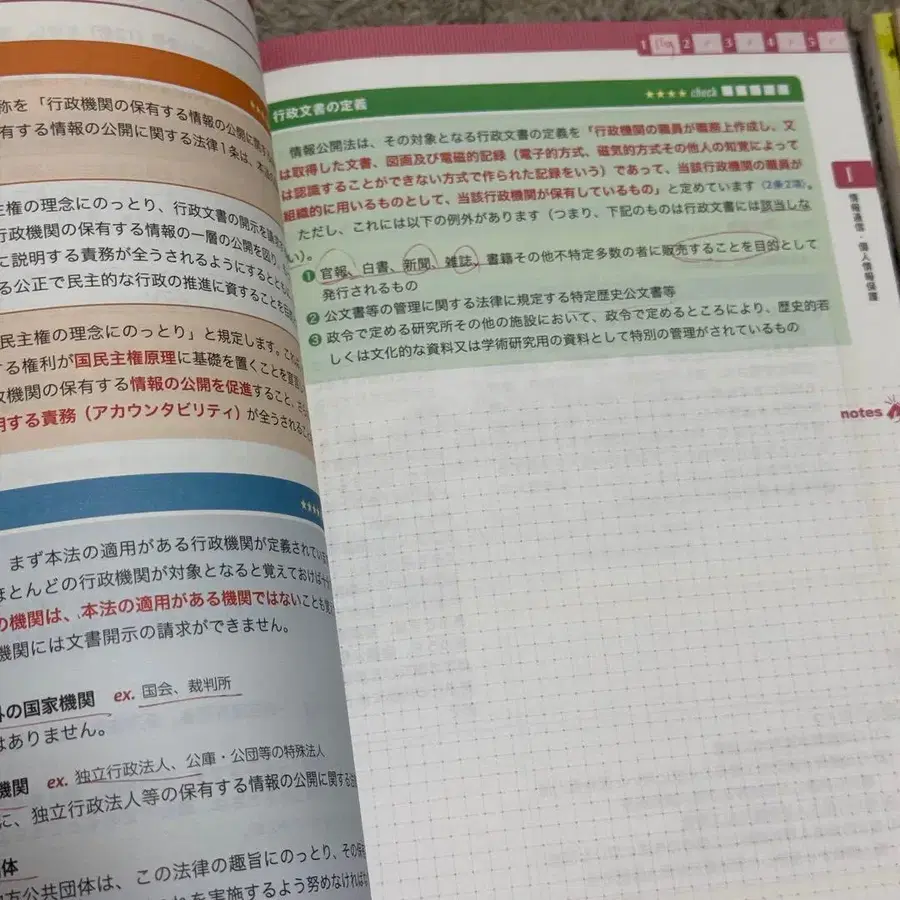 称を「行政機関の保有する情報の公開に関する
有する情報の公開に関する法律1条は、本法の
主権の理念にのっとり、行政文書の開示を請求
行政機関の保有する情報の一層の公開を図り、
に説明する責務が全うされるようにするとともに、
る公正で民主的な行政の推進に資することを目的
民主権の理念にのっとり」と規定します。これは
する権利が国民主権原理に基礎を置くことを宣言
政機関の保有する情報の公開を促進すること、さら
明する責務（アカウンタビリティ）が全うされること
★★★★
まず本法の適用がある行政機関が定義されてい
ほとんどの行政機関が対象となると覚えておけば十
の機関は、本法の適用がある機関ではないことも覚え
機関には文書開示の請求ができません。
外の国家機関 ex. 国会、裁判所
はありません。
機関 ex. 独立行政法人、公庫・公団等の特殊法人
に、独立行政法人等の保有する情報の公開に関する法
団体
方公共団体は、この法律の趣旨にのっとり、その保
を実施するよう努めなければな
1 2 3 4 5
行政文書の定義 ★★★★ check
情報公開法は、その対象となる行政文書の定義を「行政機関の職員が職務上作成し、又
は取得した文書、図画及び電磁的記録（電子的方式、磁気的方式その他人の知覚によって
は認識することができない方式で作られた記録をいう）であって、当該行政機関の職員が
組織的に用いるものとして、当該行政機関が保有しているもの」と定めています（2条2項）。
ただし、これには以下の例外があります（つまり、下記のものは行政文書には該当しな
い）。
❶ 官報、白書、新聞、雑誌、書籍その他不特定多数の者に販売することを目的として
発行されるもの
❷ 公文書等の管理に関する法律に規定する特定歴史公文書等
❸ 政令で定める研究所その他の施設において、政令で定めるところにより、歴史的若
しくは文化的な資料又は学術研究用の資料として特別の管理がされているもの
I
情報通信・個人情報保護
notes